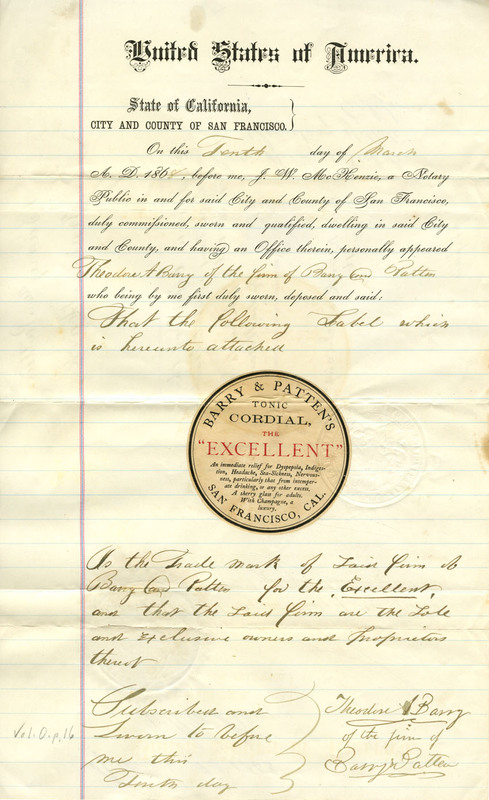 United States of America.
State of California,
CITY AND COUNTY OF SAN FRANCISCO.
On this Tenth day of March
A. D. 1868, before me, J. W. McKenzie, a Notary
Public in and for said City and County of San Francisco,
duly commissioned, sworn and qualified, dwelling in said City
and County, and having an Office therein, personally appeared
Theodore A Barry of the firm of Barry and Patten
who being by me first duly sworn, deposed and said:
That the following Label which
is hereunto attached
BARRY & PATTEN'S
TONIC
CORDIAL,
THE
"EXCELLENT"
An immediate relief for Dyspepsia, Indiges-
tion, Headache, Sea-Sickness, Nervous-
ness, particularly that from intemper-
ate drinking, or any other excess.
A sherry glass for adults.
With Champagne, a
luxury.
SAN FRANCISCO, CAL.
As the Trade Mark of said firm of
Barry and Patten for the "Excellent,"
and that the said firm are the Sole
and exclusive owners and proprietors
thereof
Subscribed and
Sworn to before
me this
Tenth day
Theodore A Barry
of the firm of
Barry & Patten
Vol. O. p. 16